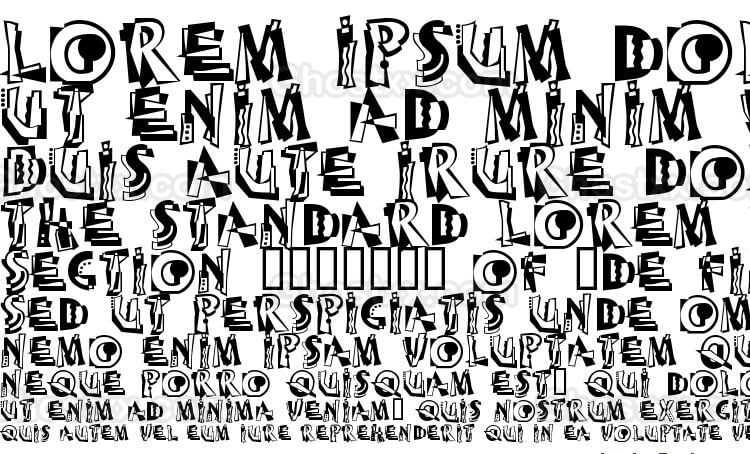 LOREM IPSUM DO
UT ENIM AD MINIM V
DUIS AUTE IRURE DO
THE STANDARD LOREM
SECTION OF DE FI
SED UT PERSPICIATIS UNDE OM
NEMO ENIM IPSAM VOLUPTATEM QU
NEQUE PORRO QUISQUAM EST QUI DOLO
UT ENIM AD MINIMA VENIAM QUIS NOSTRUM EXERCIT
QUIS AUTEM VEL EUM IURE REPREHENDERIT QUI IN EA VOLUPTATE VE